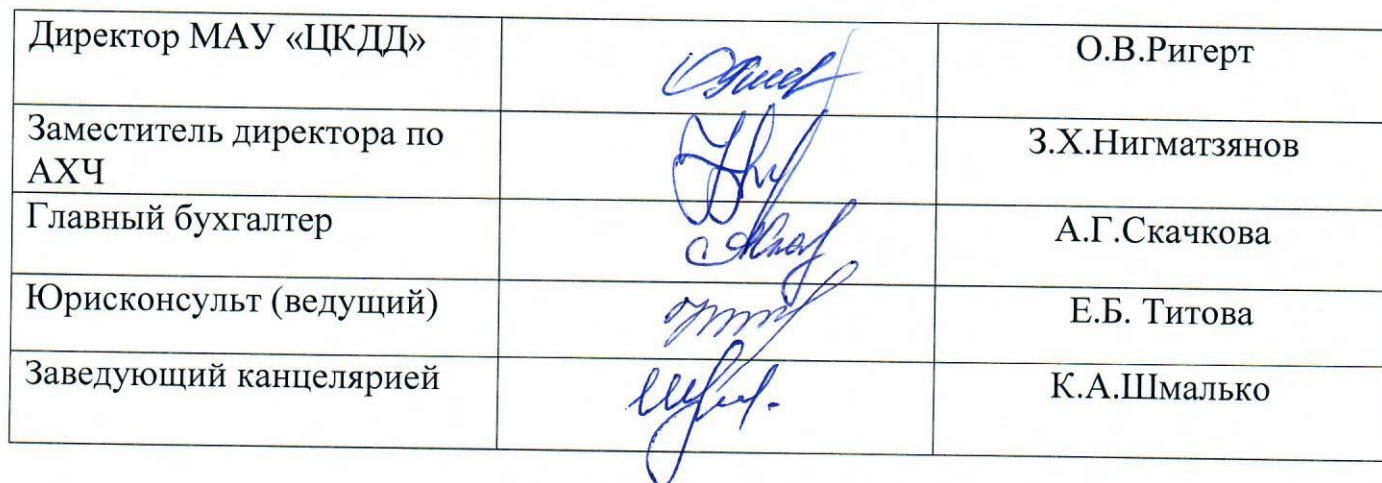 Директор МАУ «ЦКДД»
О.В.Ригерт
Заместитель директора по
АХЧ
З.Х.Нигматзянов
Главный бухгалтер
А.Г.Скачкова
Юрисконсульт (ведущий)
Е.Б. Титова
Заведующий канцелярией
К.А.Шмалько